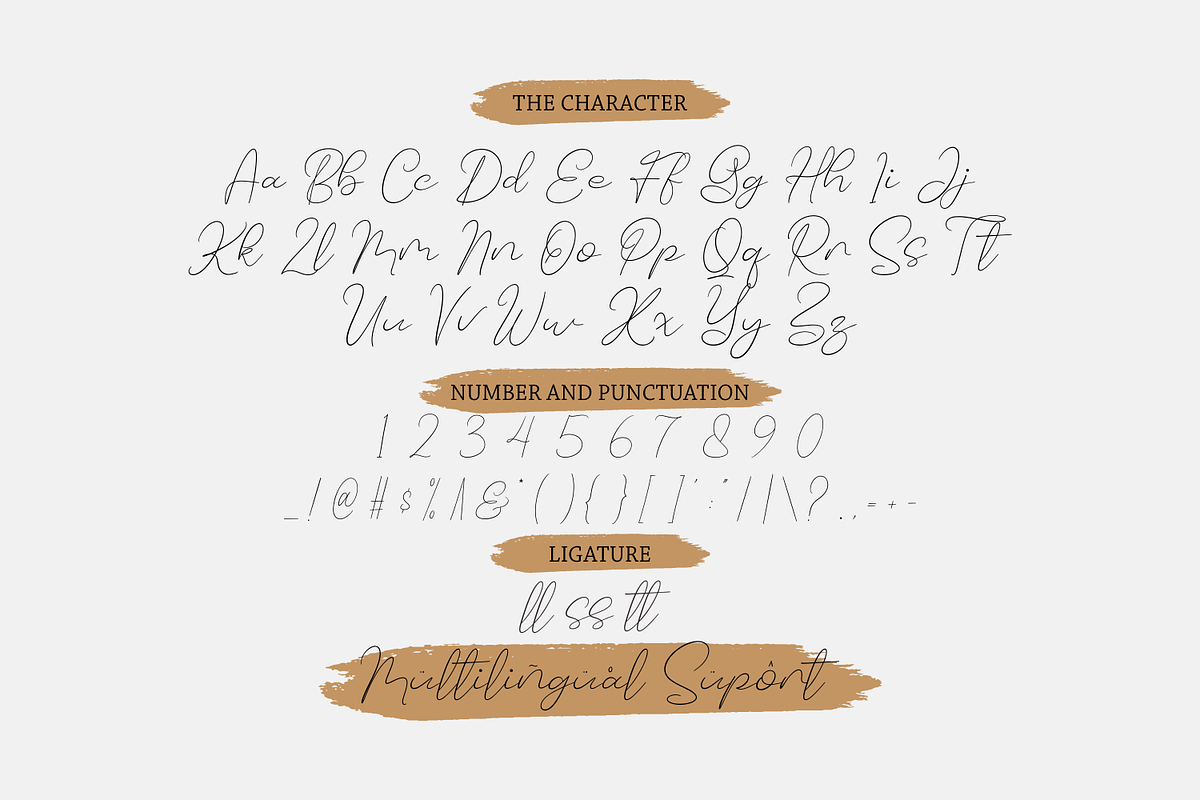 THE CHARACTER
Aa Bb Cc Dd Ee Ff Gg Hh Ii Jj
Kk Ll Mm Nn Oo Pp Qq Rr Ss Tt
Uu Vv Ww Xx Yy Zz
NUMBER AND PUNCTUATION
1 2 3 4 5 6 7 8 9 0
_ ! @ # $ % ^ & * ( ) { } [ ] ' : " / | \ ? . , = + -
LIGATURE
ll ss tt
Mültilingüål Süpôrt